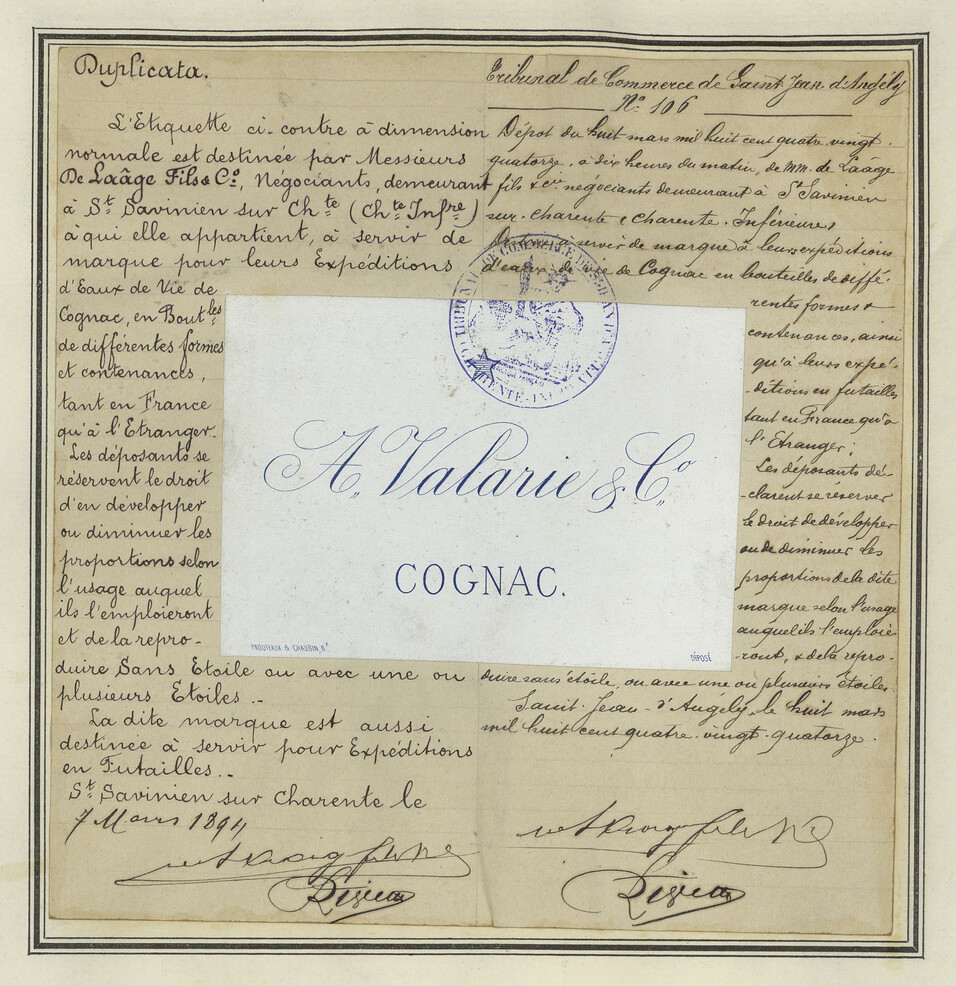 Duplicata.
L'Etiquette ci-contre à dimension
normale est destinée par Messieurs
De Laâge Fils & Co, Négociants, demeurant
à St Savinien sur Chte (Chte Infre)
à qui elle appartient, à servir de
marque pour leurs Expéditions
d'Eaux de Vie de
Cognac, en Boutles
de différentes formes
et contenances,
tant en France
qu'à l'Etranger.
Les déposants se
réservent le droit
d'en développer
ou diminuer les
proportions selon
l'usage auquel
ils l'emploieront
et de la repro-
duire Sans Etoile ou avec une ou
plusieurs Etoiles..
La dite marque est aussi
destinée à servir pour Expéditions
en Futailles..
St Savinien sur Charente le
7 Mars 1894
Tribunal de Commerce de Saint Jean d'Angély
No 106
Dépot du huit mars mil huit cent quatre vingt
quatorze, à dix heures du matin, de MM. de Laâge
fils & Cie négociants demeurant à St Savinien
sur-charente (Charente-Inférieure)
à servir de marque à leurs expéditions
d'eaux de vie de Cognac en bouteilles de diffé-
rentes formes &
contenances, ainsi
qu'à leurs expé-
ditions en futailles
tant en France qu'à
l'Etranger;
Les déposants dé-
-clarent se réserver
le droit de développer
ou de diminuer les
proportions de la dite
marque selon l'usage
auquel ils l'emploie-
ront, & de la repro-
duire sans étoile, ou avec une ou plusieurs étoiles
Saint-Jean-d'Angély, le huit mars
mil huit cent quatre-vingt-quatorze.
TRIBUNAL DE COMMERCE DE ST JEAN D'ANGÉLY
CHARENTE-INFRE
A. Valarie & Co.
COGNAC.
PROUTEAUX & CHAUBIN, Bx
DÉPOSÉ